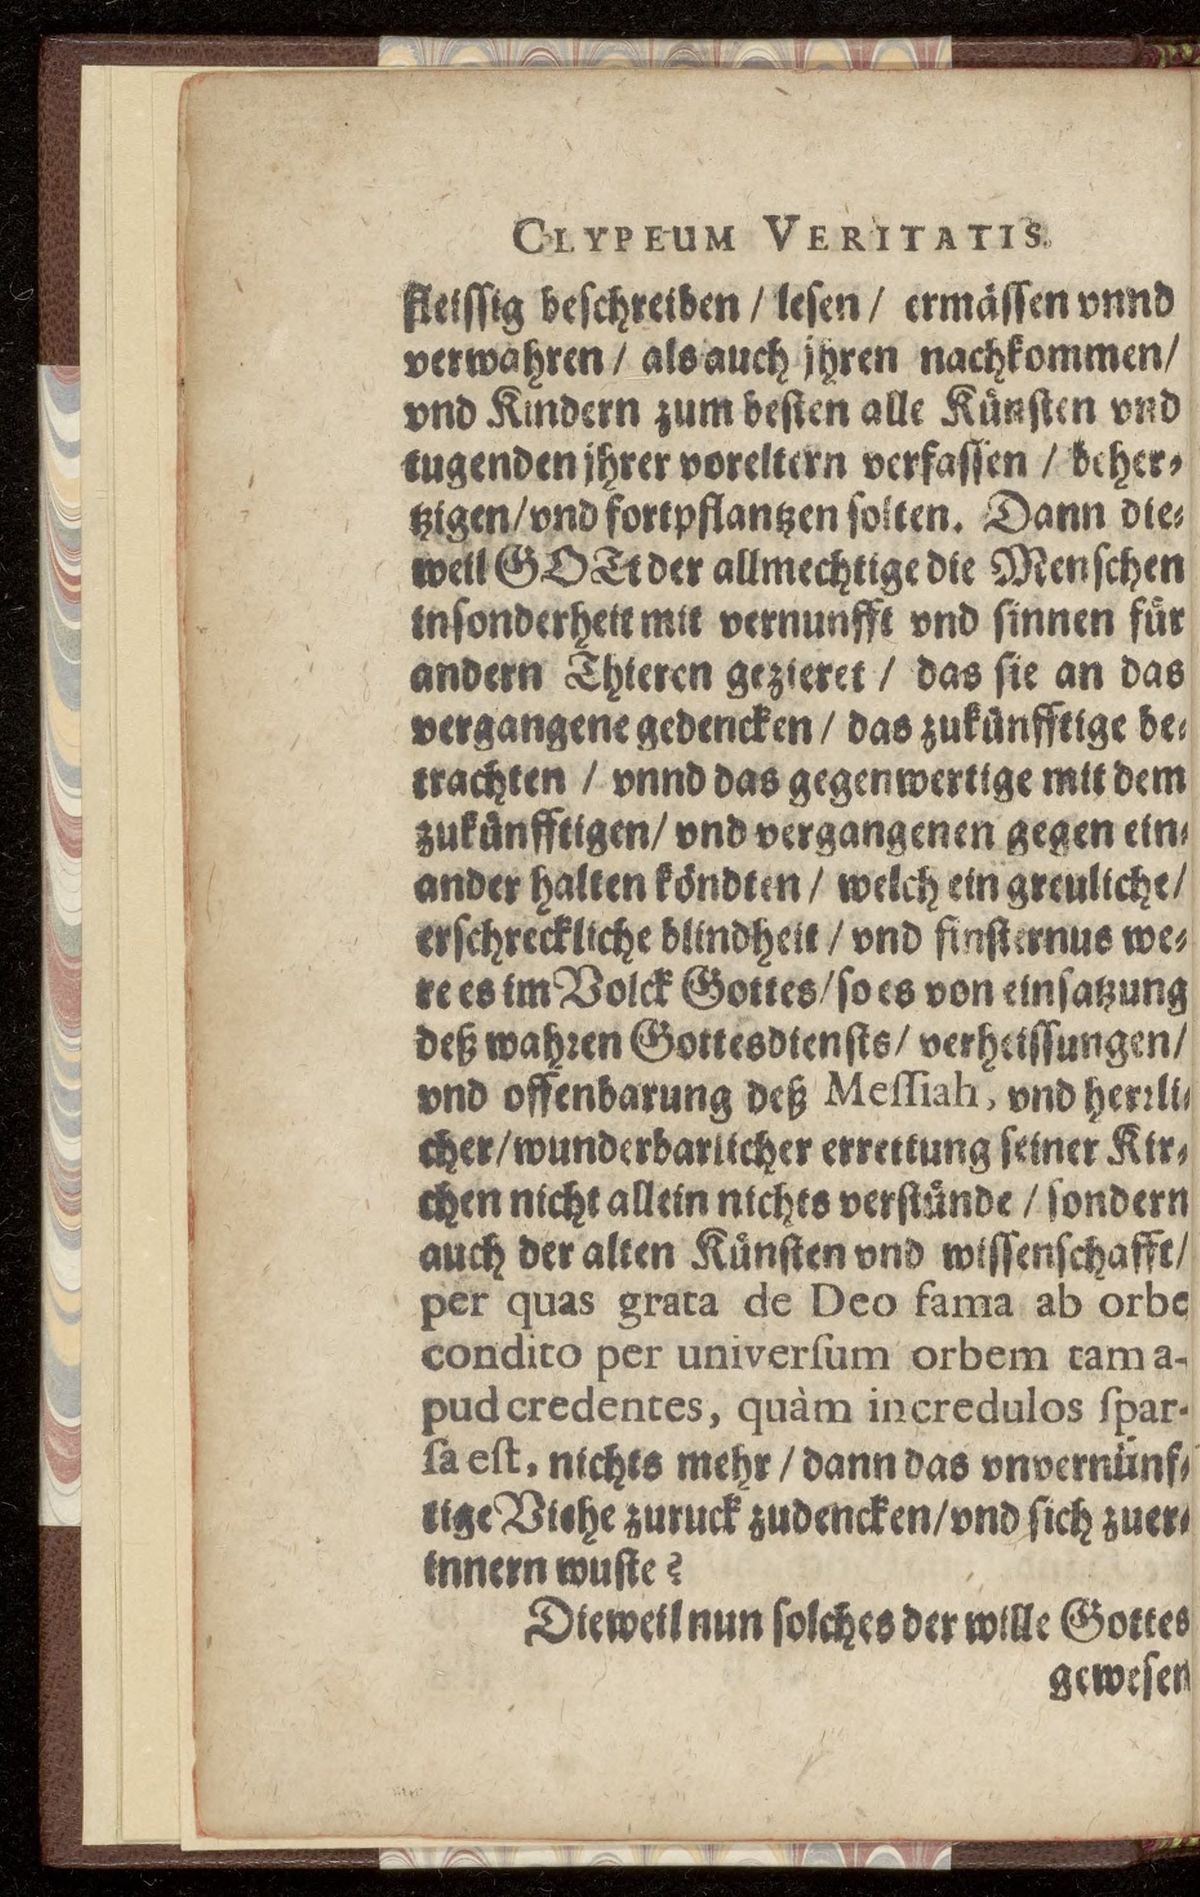 CLYPEUM VERITATIS.
fleissig beschreiben / lesen / ermässen vnnd
verwahren / als auch jhren nachkommen /
vnd Kindern zum besten alle Künsten vnd
tugenden jhrer voreltern verfassen / beher-
tzigen / vnd fortpflantzen solten. Dann die-
weil GOTt der allmechtige die Menschen
insonderheit mit vernunfft vnd sinnen für
andern Thieren gezieret / das sie an das
vergangene gedencken / das zukünfftige be-
trachten / vnnd das gegenwertige mit dem
zukünfftigen / vnd vergangenen gegen ein-
ander halten köndten / welch ein greuliche /
erschreckliche blindheit / vnd finsternus we-
re es im Volck Gottes / so es von einsatzung
deß wahren Gottesdiensts / verheissungen /
vnd offenbarung deß Messiah, vnd herrli-
cher / wunderbarlicher errettung seiner Kir-
chen nicht allein nichts verstünde / sondern
auch der alten Künsten vnd wissenschafft /
per quas grata de Deo fama ab orbe
condito per universum orbem tam a-
pud credentes, quàm incredulos spar-
sa est, nichts mehr / dann das vnvernünf-
tige Viehe zuruck zudencken / vnd sich zuer-
innern wuste?
Dieweil nun solches der wille Gottes
gewesen